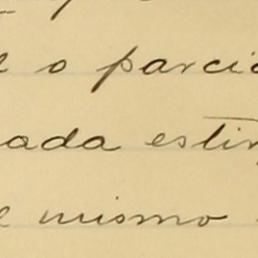 o parcia
ada estin
mismo